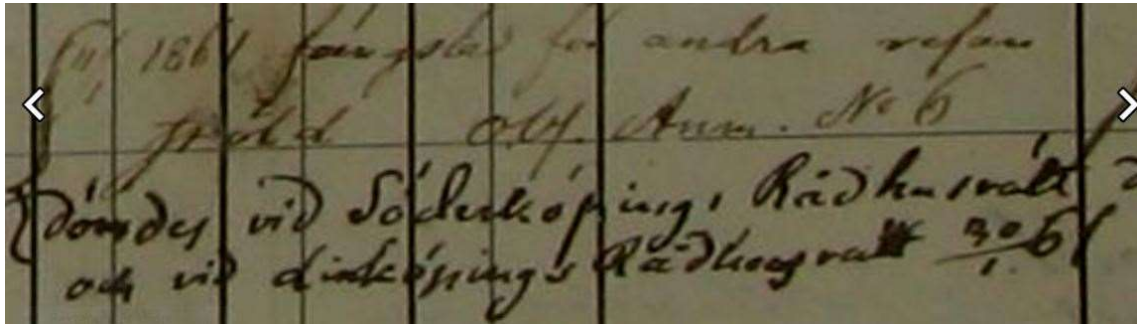 1861 fängslad för andra resan
stöld Olf. Anm. No 6
dömdes vid Söderköpings Rådhusrätt d
och vid Linköpings Rådhusrätt 30/1 61